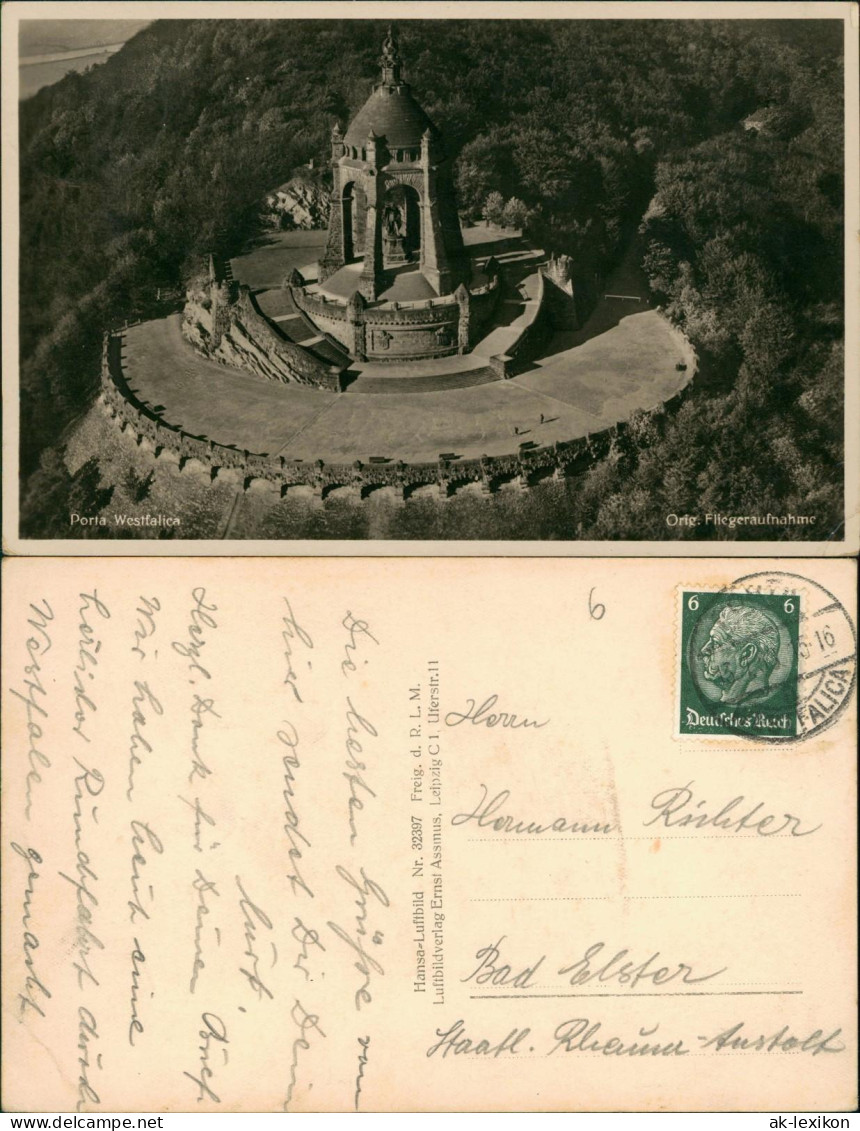 Porta Westfalica
Orig. Fliegeraufnahme
Die besten Grüsse von
hier sendet Dir Dein
Kurt.
Herzl. Dank für Deinen Brief
Wir haben heut eine
herrliche Rundfahrt durch
Westfalen gemacht.
Hansa-Luftbild Nr. 32397 Freig. d. R. L. M.
Luftbildverlag Ernst Assmus, Leipzig C 1, Uferstr. 11
6
6 6
Deutsches Reich
16
FALICA
Herrn
Hermann Richter
Bad Elster
Staatl. Rheuma-Anstalt
ak-lexikon